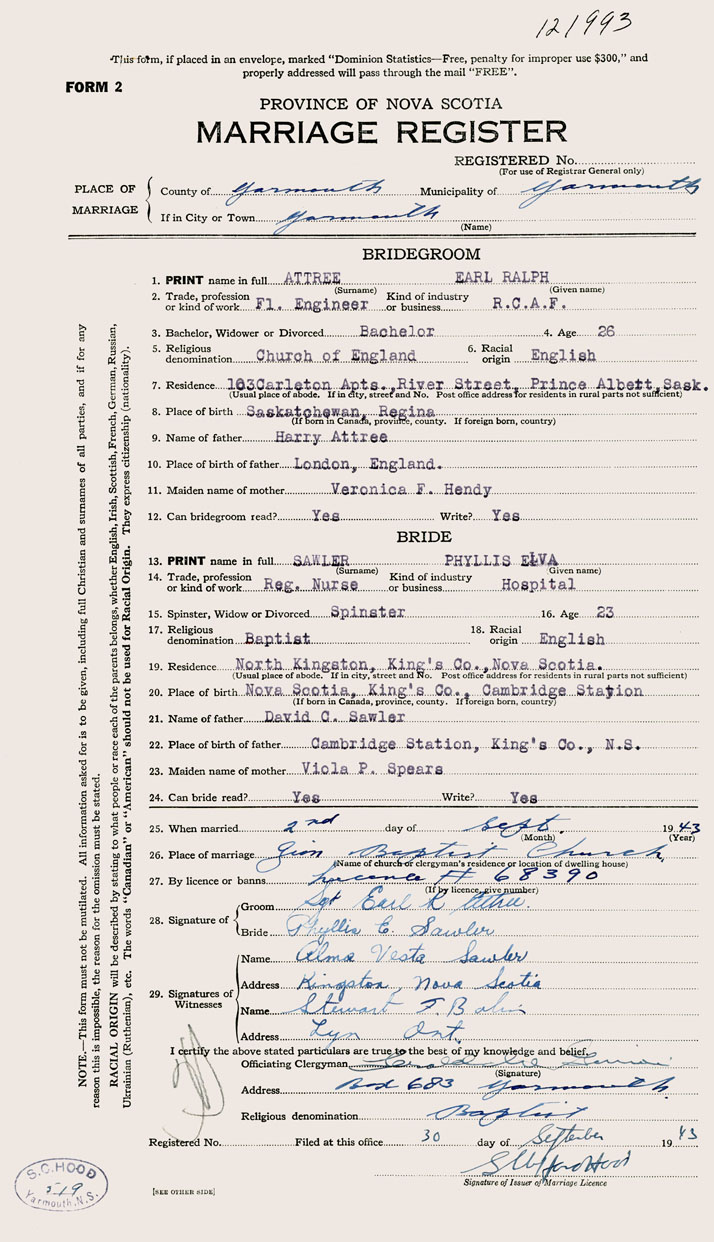 121993
This form, if placed in an envelope, marked "Dominion Statistics—Free, penalty for improper use $300," and
properly addressed will pass through the mail "FREE".
FORM 2
PROVINCE OF NOVA SCOTIA
MARRIAGE REGISTER
REGISTERED No.
(For use of Registrar General only)
PLACE OF MARRIAGE
County of Yarmouth Municipality of Yarmouth
If in City or Town Yarmouth
(Name)
BRIDEGROOM
1. PRINT name in full ATTREE EARL RALPH
(Surname) (Given name)
2. Trade, profession or kind of work Fl. Engineer Kind of industry or business R.C.A.F.
3. Bachelor, Widower or Divorced Bachelor 4. Age 26
5. Religious denomination Church of England 6. Racial origin English
7. Residence 103Carleton Apts., River Street, Prince Albett, Sask.
(Usual place of abode. If in city, street and No. Post office address for residents in rural parts not sufficient)
8. Place of birth Saskatchewan, Regina
(If born in Canada, province, county. If foreign born, country)
9. Name of father Harry Attree
10. Place of birth of father London, England.
11. Maiden name of mother Veronica F. Hendy
12. Can bridegroom read? Yes Write? Yes
BRIDE
13. PRINT name in full SAWLER PHYLLIS ELVA
(Surname) (Given name)
14. Trade, profession or kind of work Reg. Nurse Kind of industry or business Hospital
15. Spinster, Widow or Divorced Spinster 16. Age 23
17. Religious denomination Baptist 18. Racial origin English
19. Residence North Kingston, King's Co., Nova Scotia.
(Usual place of abode. If in city, street and No. Post office address for residents in rural parts not sufficient)
20. Place of birth Nova Scotia, King's Co., Cambridge Station
(If born in Canada, province, county. If foreign born, country)
21. Name of father David C. Sawler
22. Place of birth of father Cambridge Station, King's Co., N.S.
23. Maiden name of mother Viola P. Spears
24. Can bride read? Yes Write? Yes
25. When married 2nd day of Sept. 1943
(Month) (Year)
26. Place of marriage Zion Baptist Church
(Name of church or clergyman's residence or location of dwelling house)
27. By licence or banns Licence # 68390
(If by licence, give number)
28. Signature of
Groom Sgt Earl R Attree.
Bride Phyllis E. Sawler
29. Signatures of Witnesses
Name Alma Vesta Sawler
Address Kingston, Nova Scotia
Name Stewart F.
Address Lyn Ont.
I certify the above stated particulars are true to the best of my knowledge and belief.
Officiating Clergyman
(Signature)
Address Box 683 Yarmouth.
Religious denomination Baptist
Registered No. Filed at this office 30 day of September 1943
Signature of Issuer of Marriage Licence
[SEE OTHER SIDE]
S.C. HOOD
519
Yarmouth, N.S.
NOTE.—This form must not be mutilated. All information asked for is to be given, including full Christian and surnames of all parties, and if for any
reason this is impossible, the reason for the omission must be stated.
RACIAL ORIGIN will be described by stating to what people or race each of the parents belongs, whether English, Irish, Scottish, French, German, Russian,
Ukrainian (Ruthenian), etc. The words "Canadian" or "American" should not be used for Racial Origin. They express citizenship (nationality).